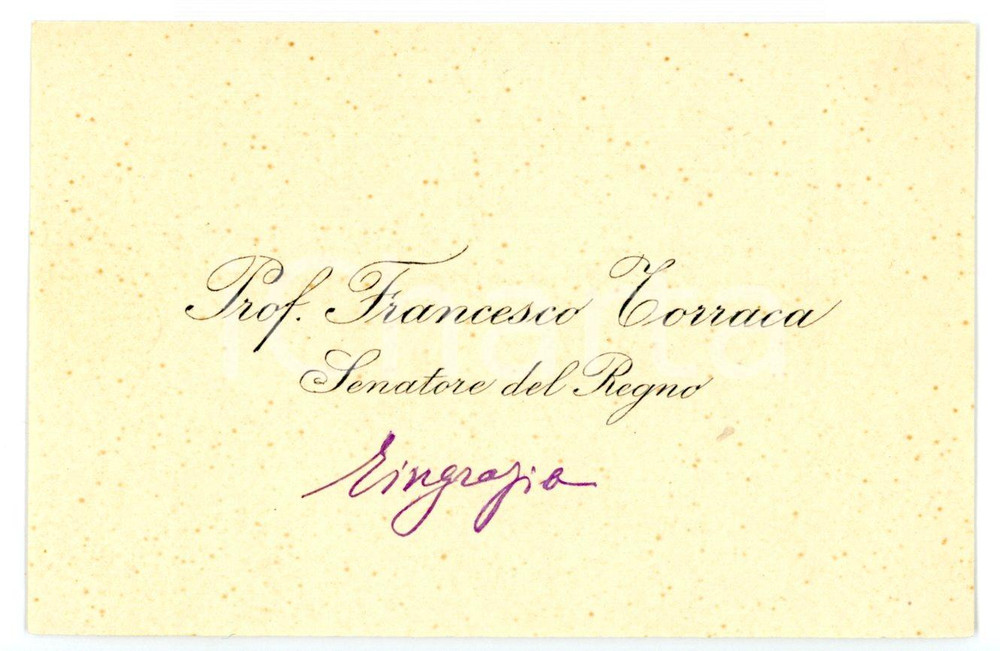 Prof. Francesco Torraca
Senatore del Regno
ringrazia